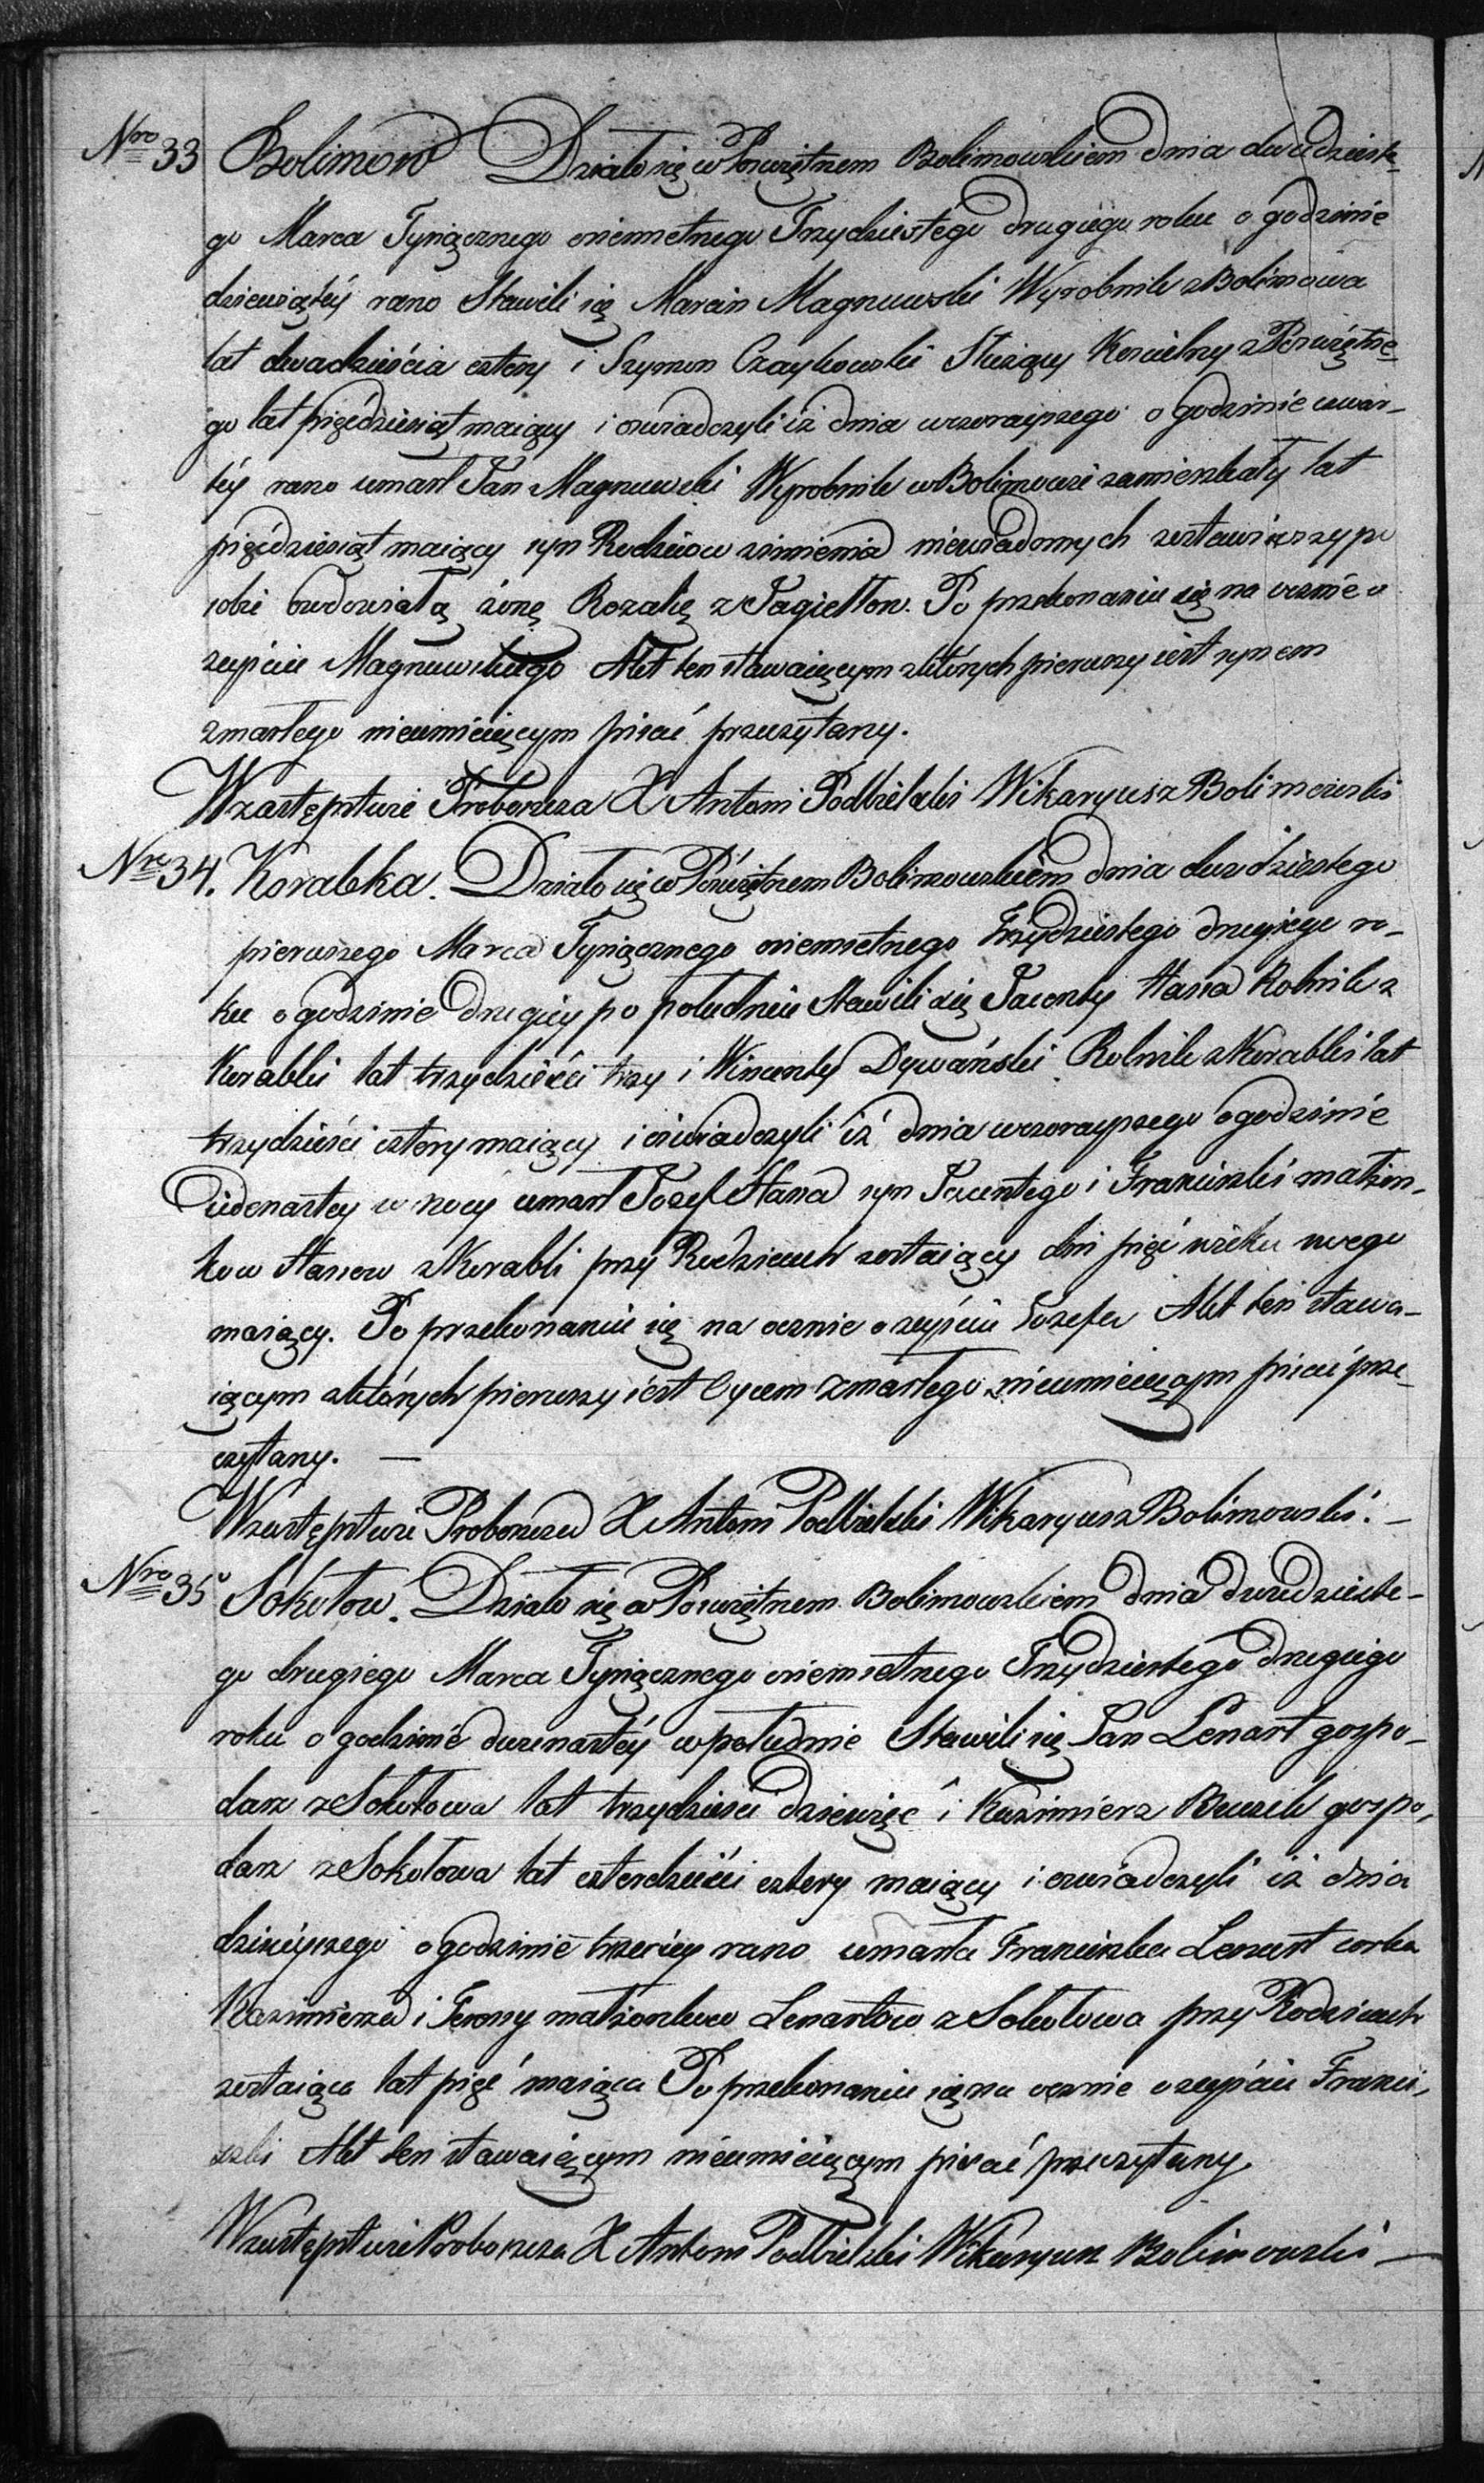 Nro 33 Bolimow Działo się w Poswiętnem Bolimowskiem dnia dwudzieste-
go Marca Tysiącznego osiemsetnego Trzydziestego drugiego roku o godzinie
dziewiątéy rano Stawili się Marcin Magnuwski Wyrobnik z Bolimowa
lat dwadzieścia cztery i Szymon Czaykowski Służący Koscielny z Poswiętne-
go lat pięćdziesiąt maiący i oswiadczyli iż dnia wczorayszego o godzinie czwar-
téy rano umarł Jan Magnuwski Wyrobnik w Bolimowie zamieszkały lat
pięćdziesiąt maiący syn Rodziców z imienia niewiadomych zostawiwszy po
sobie owdowiałą żonę Rozalię z Jagiełłow. Po przekonaniu się na ocznie o
zeyściu Magnuwskiego Akt ten stawaiącym z których pierwszy iest synem
zmarłego nieumieiącym pisać przeczytany.
W zastępstwie Proboszcza X Antoni Podbielski Wikaryusz Bolimowski
Nro 34. Korabka. Działo się w Poswiętnem Bolimowskiem dnia dwudziestego
pierwszego Marca Tysiącznego osiemsetnego Trzydziestego drugiego ro-
ku o godzinie drugiey po południu Stawili się Jacenty Hana Rolnik z
Korabki lat trzydzieści trzy i Wincenty Dywański Rolnik z Korabki lat
trzydzieści cztery maiący i oswiadczyli iż dnia wczorayszego o godzinie
iedenastey w nocy umarł Jozef Hana syn Jacentego i Franciszki małżon-
kow Hanow z Korabki przy Rodzicach zostaiący dni pięć wieku swego
maiący. Po przekonaniu się na ocznie o zeyściu Jozefa Akt ten stawa-
iącym z których pierwszy iest Oycem zmarłego nieumieiącym pisać prze-
czytany. —
W zastępstwie Proboszcza X Antoni Podbielski Wikaryusz Bolimowski. —
Nro 35 Sokołow. Działo się w Poswiętnem Bolimowskiem dnia dwudzieste-
go drugiego Marca Tysiącznego osiemsetnego Trzydziestego drugiego
roku o godzinie dwunastéy w południe Stawili się Jan Lenart gospo-
darz z Sokołowa lat trzydzieści dziewięć i Kazimierz gospo-
darz z Sokołowa lat czterdzieści cztery maiący i oswiadczyli iż dnia
dzisieyszego o godzinie trzeciey rano umarła Franciszka Lenart corka
Kazimierza i małżonkow Lenartow z Sokołowa przy Rodzicach
zostaiąca lat pięć maiąca Po przekonaniu się na ocznie o zeyściu Franci-
szki Akt ten stawaiącym nieumieiącym pisać przeczytany
W zastępstwie Proboszcza X Antoni Podbielski Wikaryusz Bolimowski —